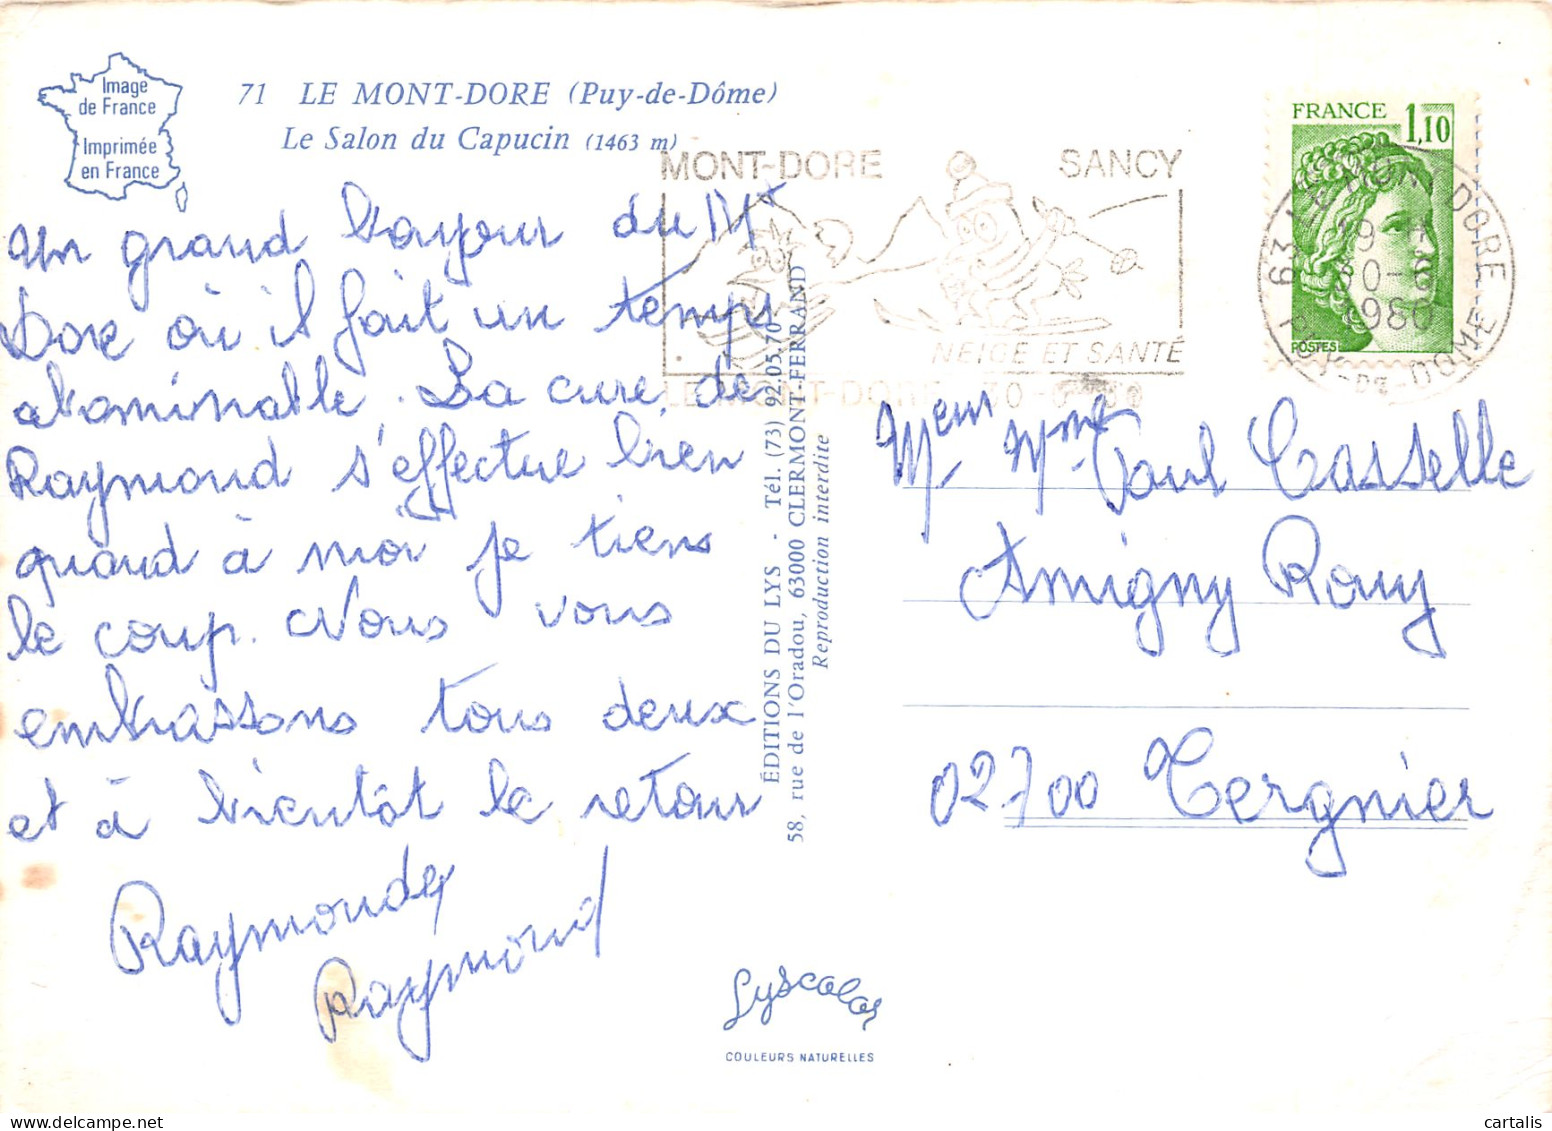 Image
de France
Imprimée
en France
71 LE MONT-DORE (Puy-de-Dôme)
Le Salon du Capucin (1463 m)
Un grand bonjour du Mt
Dore où il fait un temps
abominable. La cure de
Raymond s'effectue bien
quand à moi je tiens
le coup. Nous vous
embrassons tous deux
et à bientôt le retour
Raymonde
Raymond
ÉDITIONS DU LYS - Tél. (73) 92.05.70
58, rue de l'Oradou, 63000 CLERMONT-FERRAND
Reproduction interdite
Lyscolor
COULEURS NATURELLES
MONT-DORE SANCY
NEIGE ET SANTÉ
LE MONT-DORE 30-6
FRANCE 1,10
POSTES
63 LE MONT DORE
19 H
30-6
1980
PUY-DE-DOME
Meur Mme Paul Casselle
Amigny Rouy
02700 Tergnier
cartalis